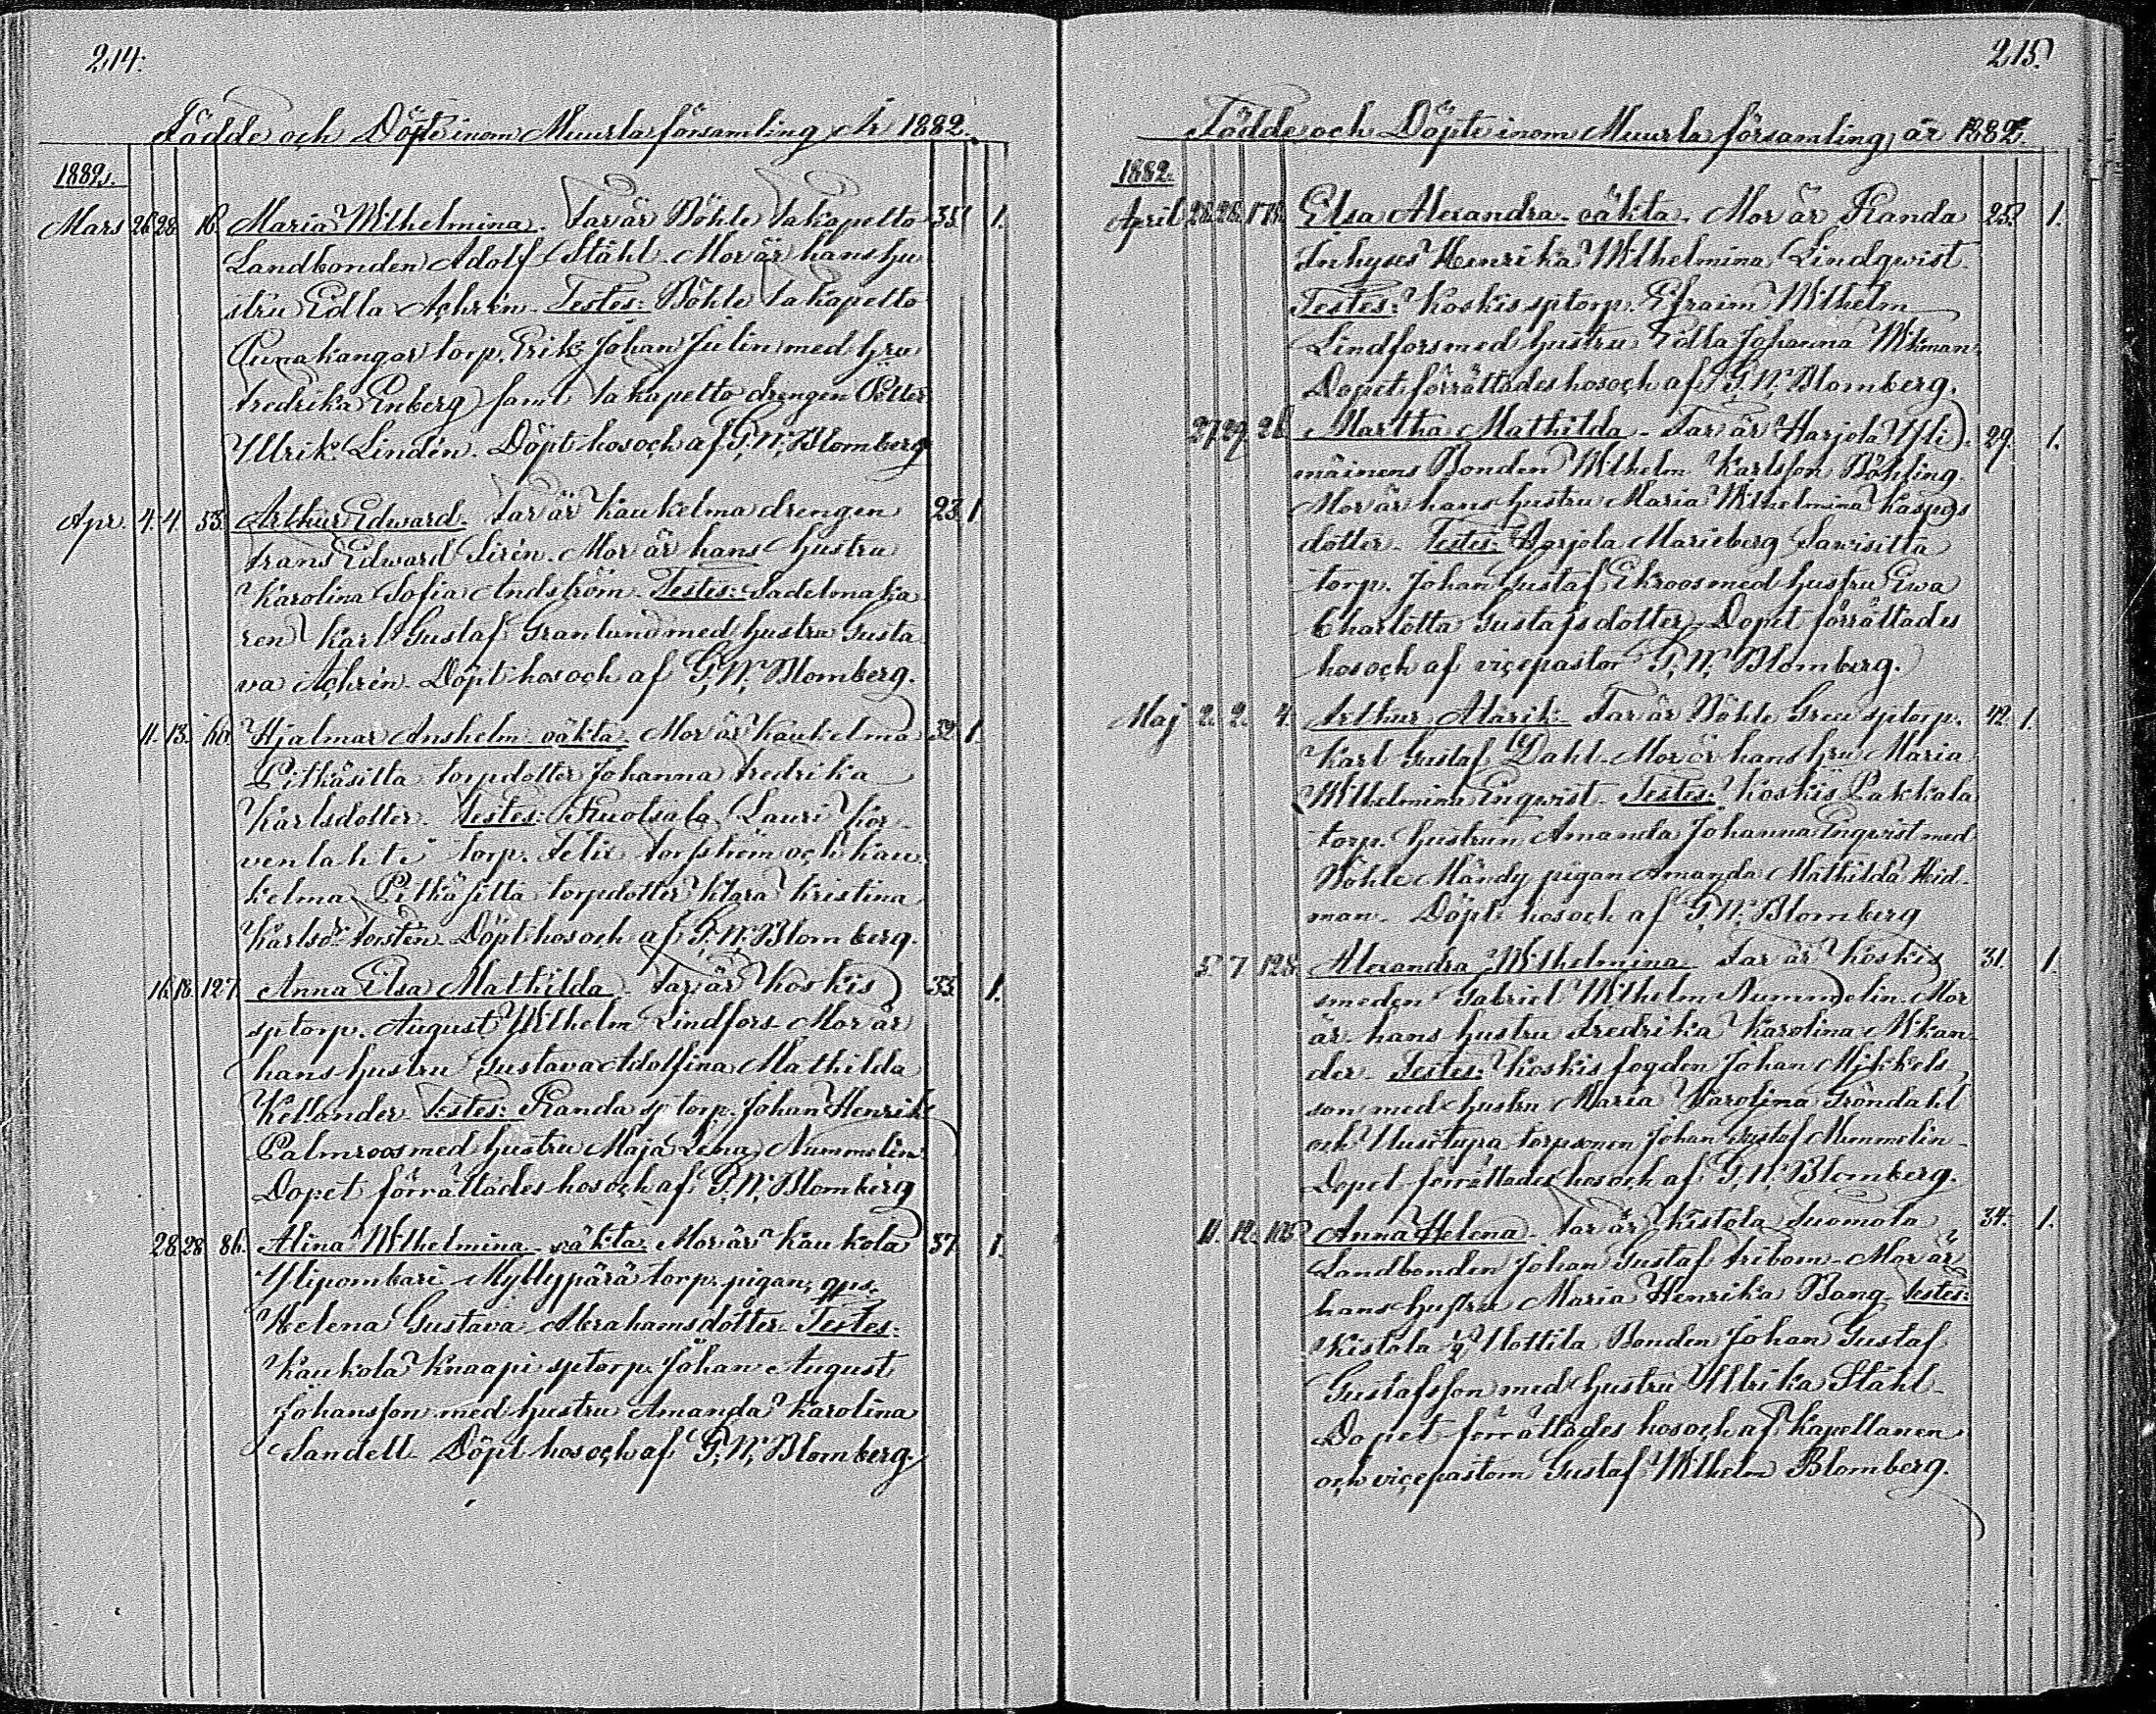 214.
Födde och Döpte inom Muurla församling År 1882.
1882.
Mars 26. 28. 16. Maria Wilhelmina. Far är Böhle Takapelto 35. 1.
Landbonden Adolf Ståhl. Mor är hans hu
stru Edla Achrén. Testes: Böhle Takapelto
Punakangar torp. Erik Johan Julin med hru
Fredrika Enberg samt Takapelto drengen Petter
Ullrik Lindén. Döpt hos och af G. W. Blomberg
Apr. 4. 4. 53. Arthur Edward. Far är Kaukelma drengen 23. 1.
Frans Edward Sirén. Mor är hans hustru
Karolina Sofia Andström. Testes: Sadelmaka
ren Karl Gustaf Granlund med hustru Gusta
va Achrén. Döpt hos och af G. W. Blomberg.
11. 13. Hjalmar Anshelm oäkta. Mor är Kaukelma 32. 1.
Pitkäsilta torpdotter Johanna Fredrika
Karlsdotter. Testes: Ruotsala Lauri Kor-
venlahti torp. Felix Torsström och Kau
kelma Pitkäsilta torpdotter Klara Kristina
Karlsdr Döpt hos och af G. W. Blomberg.
16. 18. 127. Anna Elsa Mathilda. Far är Koskis 33. 1.
sptorp. August Wilhelm Lindfors. Mor är
hans hustru Gustava Adolfina Mathilda
Kellander. Testes: Randa sptorp. Johan Henrik
Palmroos med hustru Maja Lena Nummelin.
Dopet förrättades hos och af G. W. Blomberg
28. 28. 86. Alina Wilhelmina oäkta. Mor är Kaukola 37. 1.
Ylipombari Myllyperä torp. pigan, qps.
Helena Gustava Abrahamsdotter. Testes:
Kaukola Knaapi sptorp. Johan August
Johansson med hustru Amanda Karolina
Sandell. Döpt hos och af G. W. Blomberg.
215.
Födde och Döpte inom Muurla församling, år 1882.
1882.
April Elsa Alexandra oäkta. Mor är Randa 25. 1.
Inhyses Henrika Wilhelmina Lindqwist.
Testes: Koskis sptorp. Efraim Wilhelm
Lindfors med hustru Edla Johanna Wiman.
Dopet förrättades hos och af G. W. Blomberg.
27. 29. 26. Martha Mathilda. Far är Harjola Yli- 29. 1.
mäinens Bonden Wilhelm Karlsson Böhling.
Mor är hans hustru Maria Wilhelmina Kaspers
dotter. Testes: Harjola Marieberg Sawisilta
torp. Johan Gustaf Ekroos med hustru Ewa
Charlotta Gustafsdotter. Dopet förrättades
hos och af vicepastor G. W. Blomberg.
Maj 2. 2. 4. Arthur Alarik. Far är Böhle Green sptorp. 42. 1.
Karl Gustaf Dahl. Mor är hans hru Maria
Wilhelmina Enqwist. Testes: Koskis Pakkala
torp. hustrun Amanda Johanna Enqwist med
Böhle Mändy pigan Amanda Mathilda Heid-
man. Döpt hos och af G. W. Blomberg
5. 7. 128. Alexandra Wilhelmina. Far är Koskis 31. 1.
smeden Gabriel Wilhelm Nummelin. Mor
är hans hustru Fredrika Karolina Wikan-
der. Testes: Koskis fogden Johan Mikkels
son med hustru Maria Karolina Gröndahl
och Uusitupa torpsonen Johan Gustaf Nummelin.
Dopet förrättades hos och af G. W. Blomberg.
11. 12. Anna Helena. Far är Kistola Tuomola 34. 1.
Landbonden Johan Gustaf Fribom. Mor är
hans hustru Maria Henrika Bang. Testes:
Kistola Uottila Bonden Johan Gustaf
Gustafsson med hustru Ullrika Ståhl.
Dopet förrättades hos och af Kapellanen
och vicepastorn Gustaf Wilhelm Blomberg.